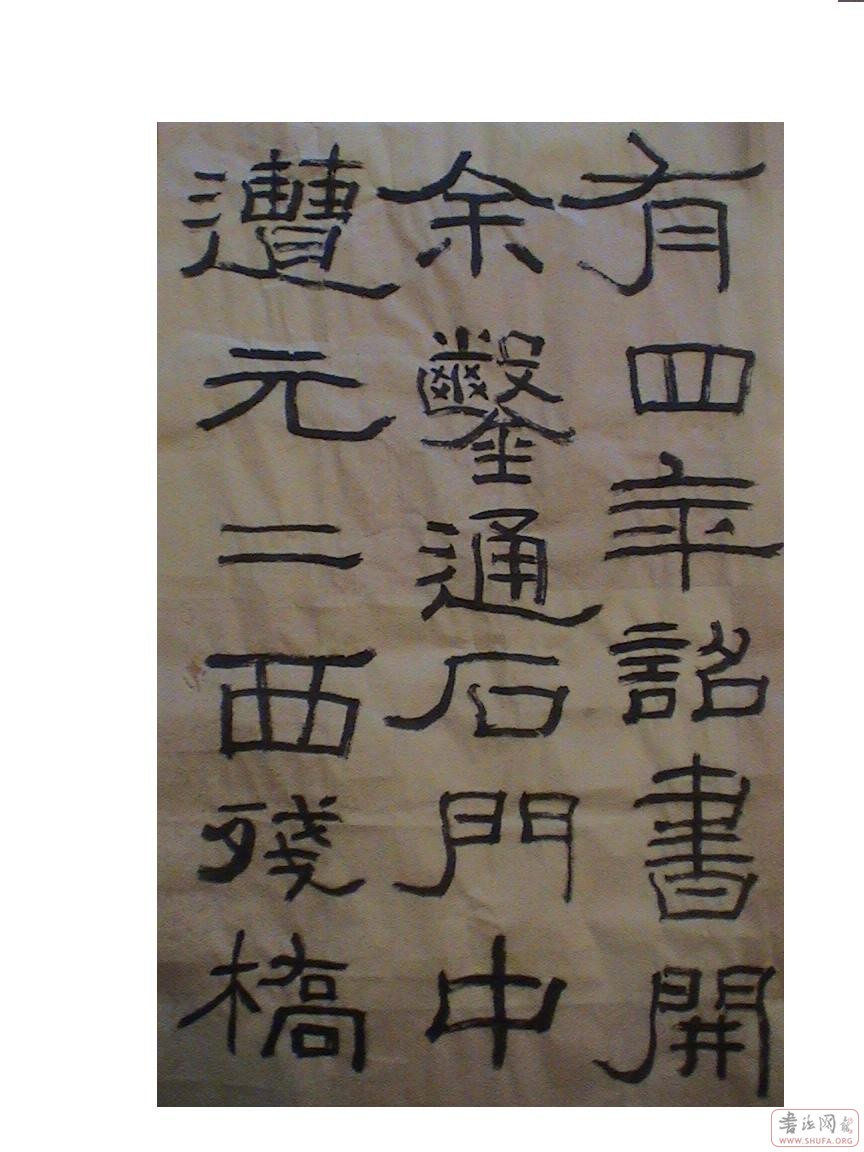 有四年詔書開
余鑿通石門中
遭元二西殘橋
书法网
WWW.SHUFA.ORG